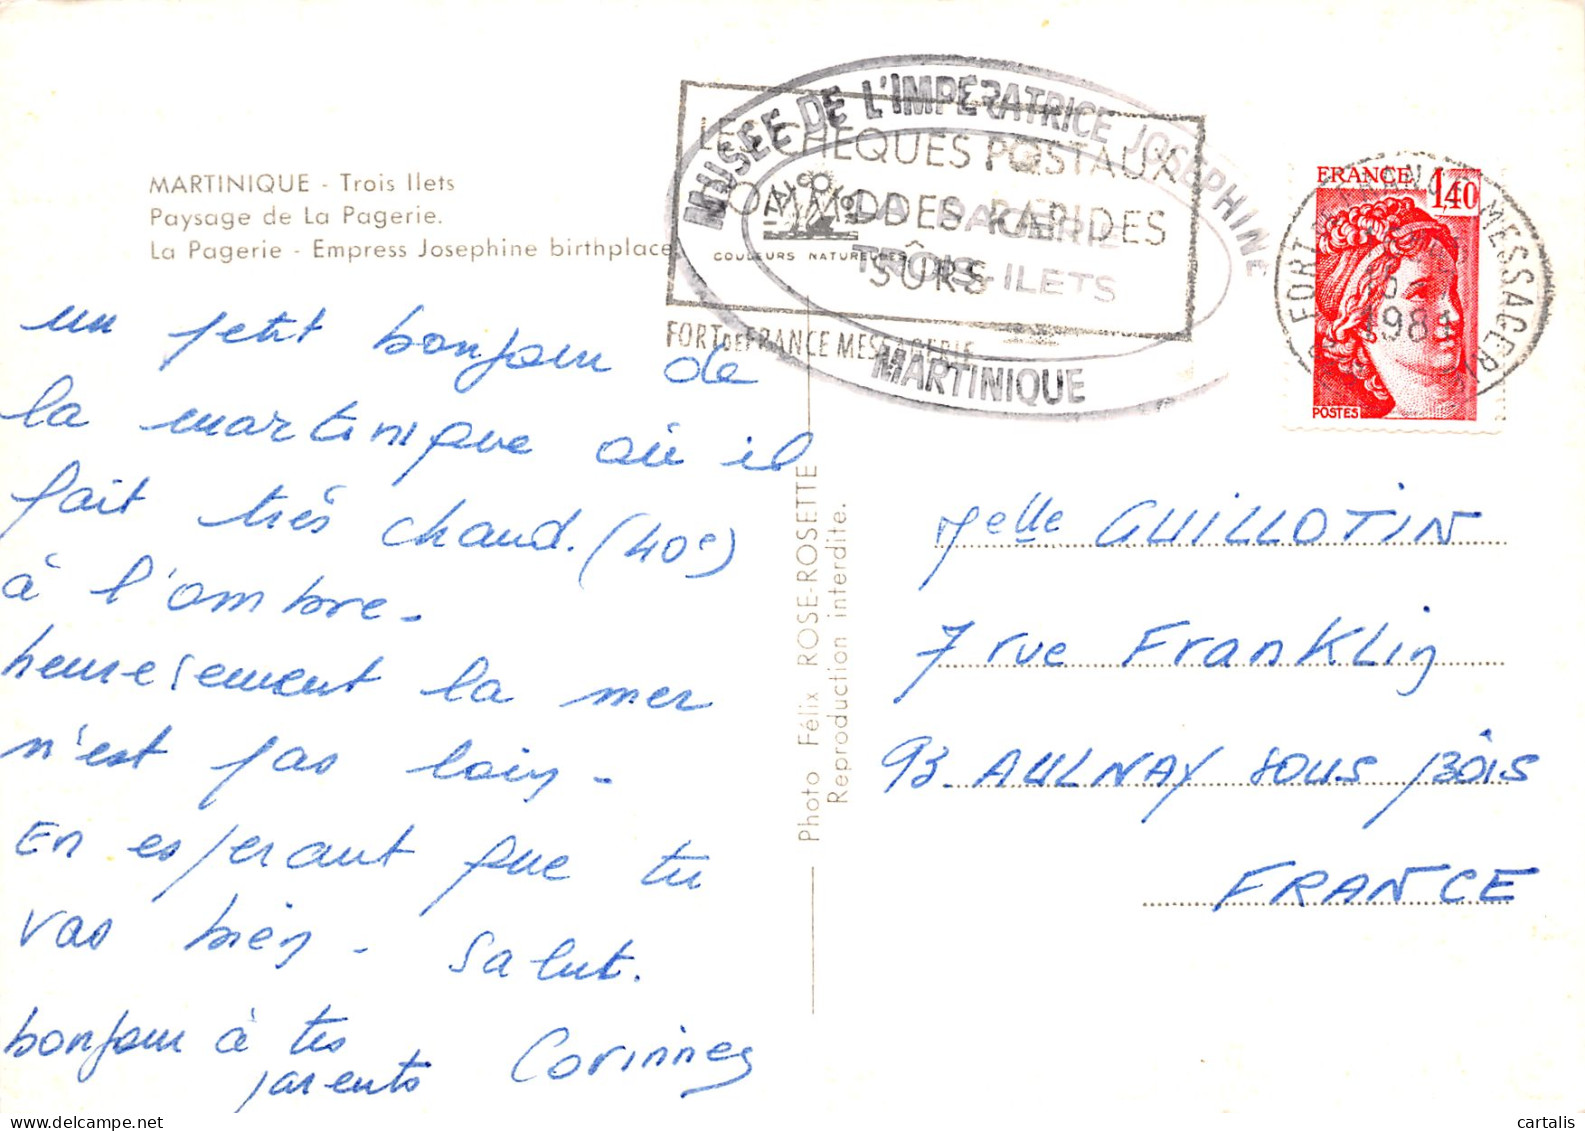 MARTINIQUE - Trois Ilets
Paysage de La Pagerie.
La Pagerie - Empress Josephine birthplace
MUSÉE DE L'IMPÉRATRICE JOSÉPHINE
LA PAGERIE
TROIS-ILETS
MARTINIQUE
LES CHEQUES POSTAUX
COMMODES RAPIDES
SÛRS
FORT DE FRANCE MESSAGERIE
COULEURS NATURELLES
FRANCE 1,40
POSTES
FORT DE FRANCE MESSAGERIE
un petit bonjour de
la martinique où il
fait très chaud. (40°)
à l'ombre.
heureusement la mer
n'est pas loin -
En esperant que tu
vas bien - Salut.
bonjour à tes
parents Corinne
Photo Félix ROSE-ROSETTE
Reproduction interdite.
Melle GUILLOTIN
7 rue Franklin
93. AULNAY sous Bois
FRANCE
cartalis